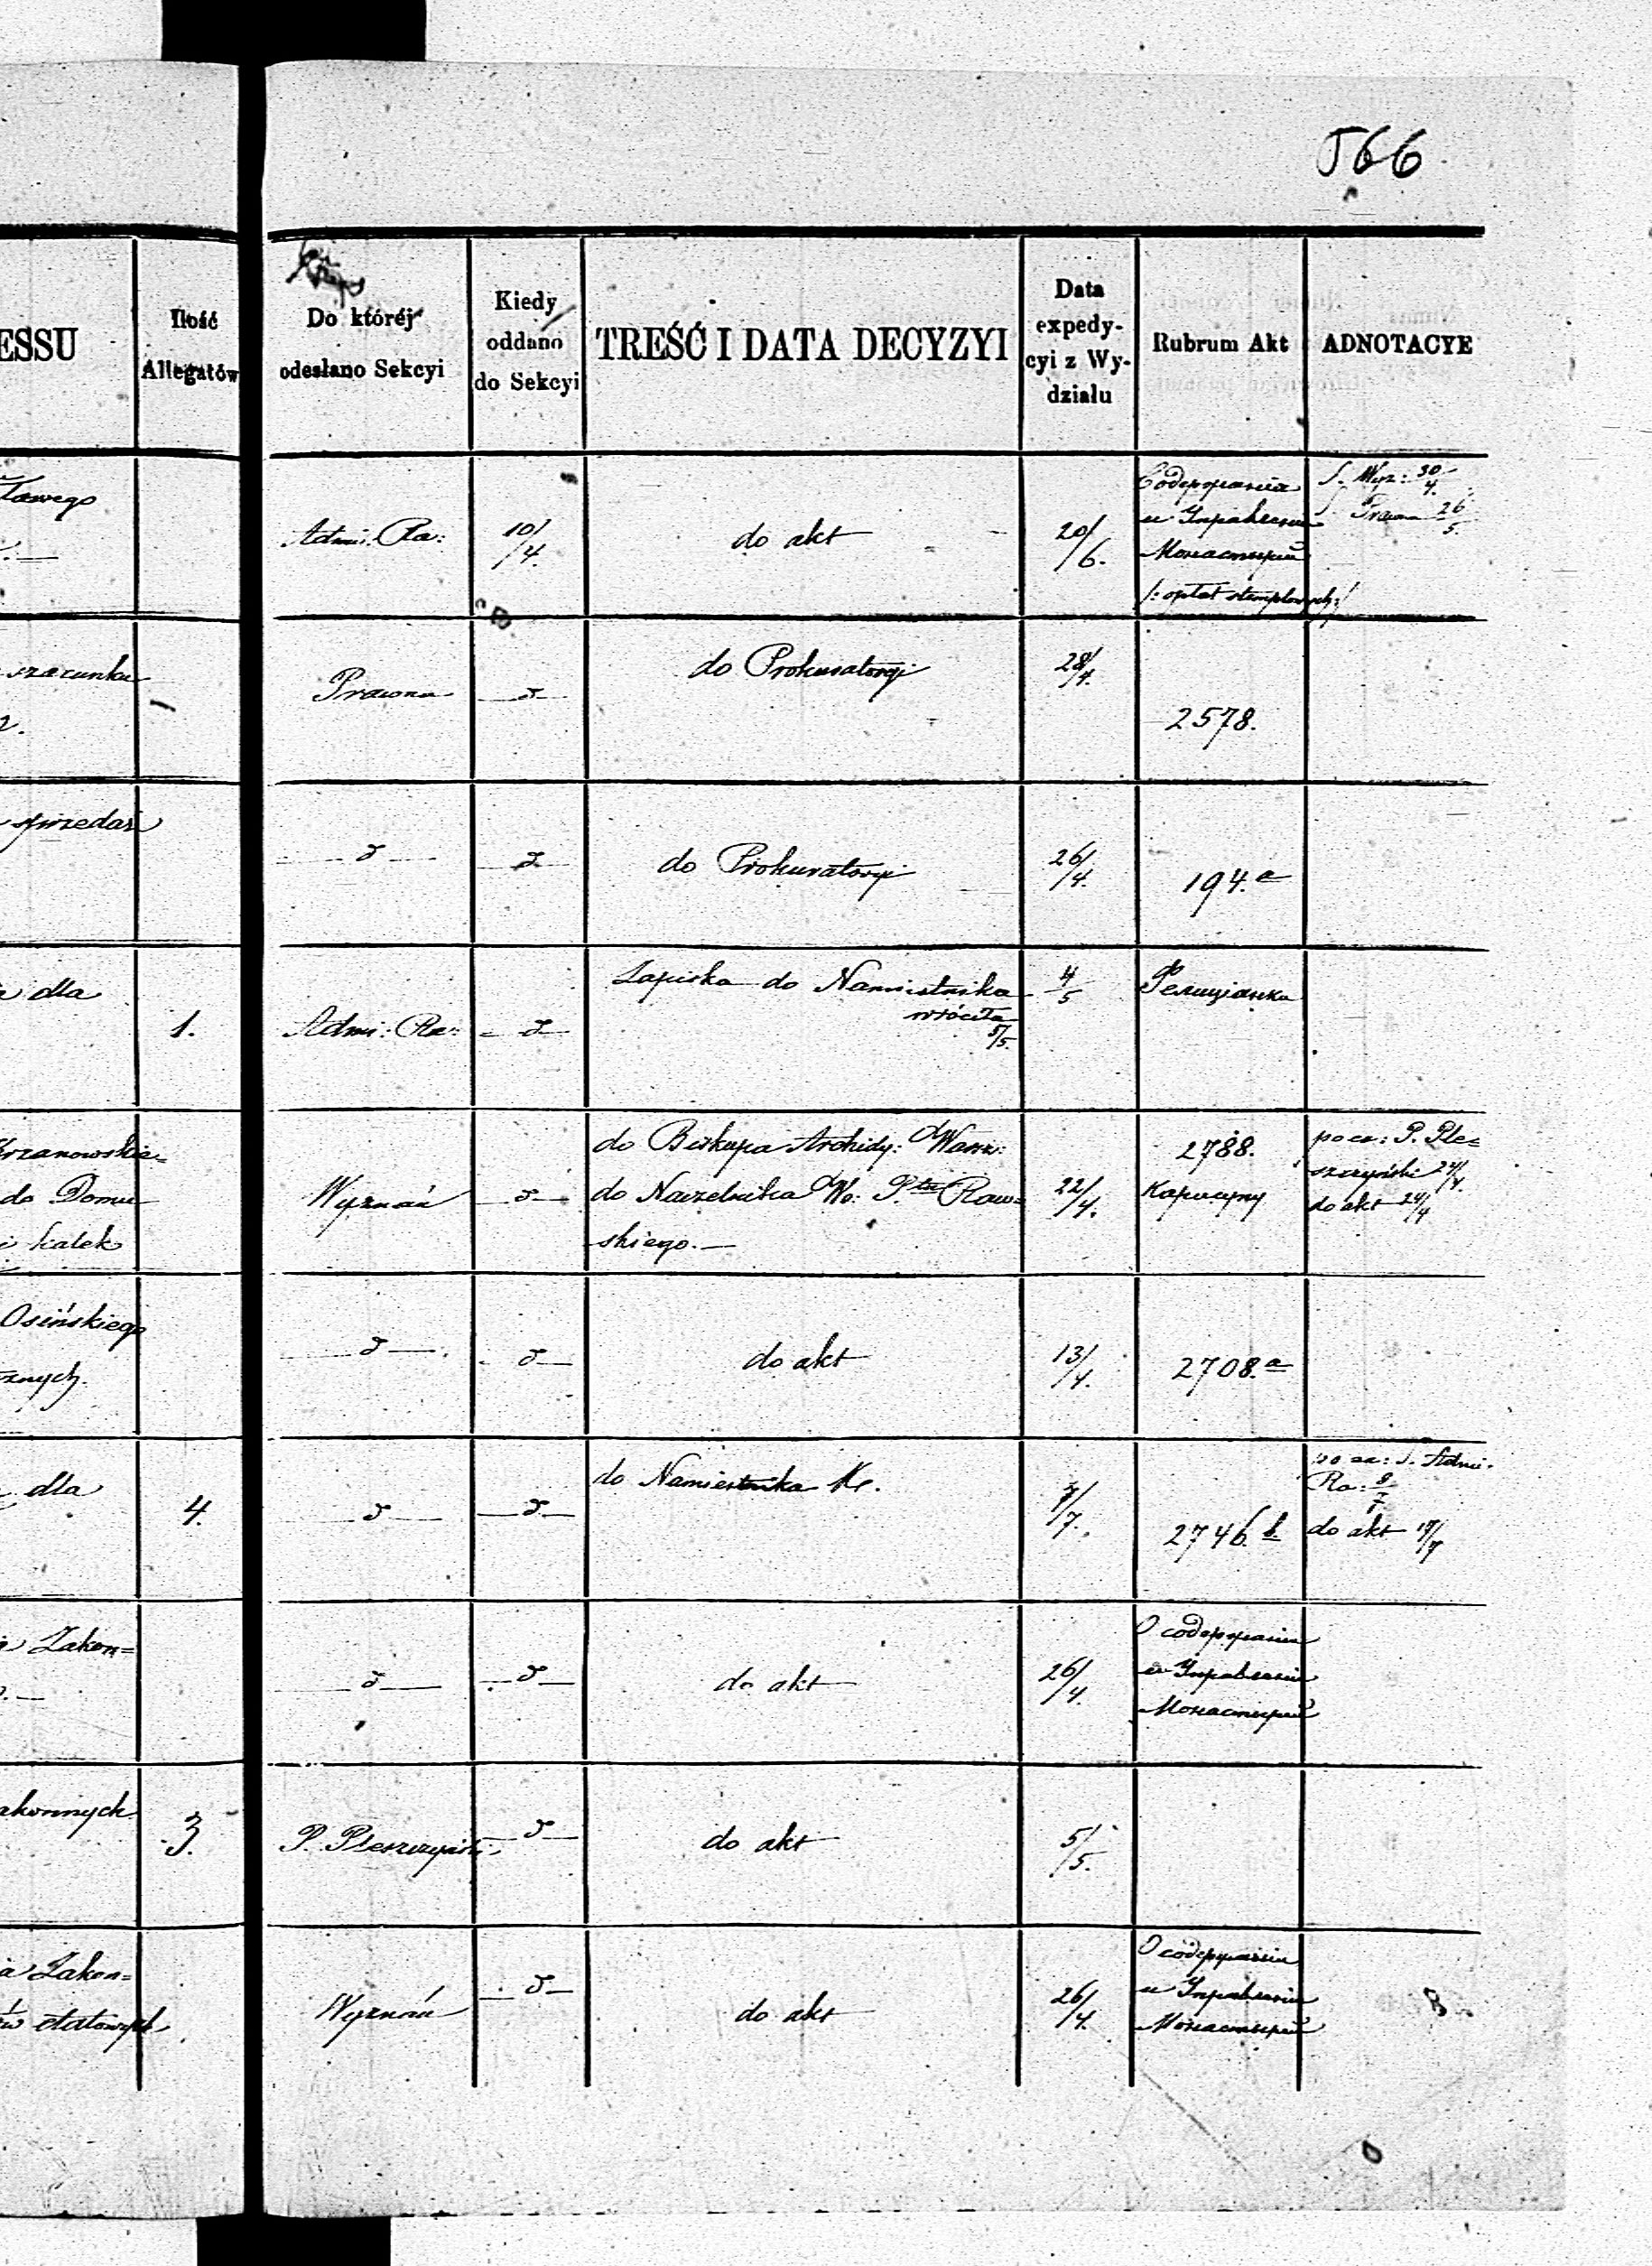 566
ESSU
Ilość
Allegatów
Do któréj
odesłano Sekcyi
Kiedy
oddano
do Sekcyi
TREŚĆ I DATA DECYZYI
Data
expedy-
cyi z Wy-
działu
Rubrum Akt
ADNOTACYE
Admi: Ra:
10/4.
do akt
20/6.
Содержанiя
и Управленiя
Монастырей
/: opłat stemplowych :/
S. Wyz: 30/4.
Prawna 26/5.
szacunku
Prawna
d
do Prokuratoryi
28/4.
2578.
sprzedaż
d
d
do Prokuratoryi
26/4.
194. a
dla
1.
Admi: Ra:
d
Zapiska do Namiestnika
wróciła
5/5.
4/5
Фелицiанки
do Domu
i kalek
Wyznań
d
do Biskupa Archidy: Warsz:
do Naczelnika Wo: Ptu Raw=
skiego.
22/4.
2788.
Kapucyny
po cz: P. Ple=
szczyński 24/4.
do akt 24/4
Osińskiego
znych.
d
d
do akt
13/4.
2708. a
dla
4.
d
d
do Namiestnika Kr.
7/7.
2746. b
po cz: S. Admi.
Ra: 9/7
do akt 17/7
Zakon=
d
d
do akt
26/4.
О содержанiи
и Управленiи
Монастырей
akonnych
3.
P. Pleszczyński
d
do akt
5/5.
a Zakon=
ów etatowych
Wyznań
d
do akt
26/4.
О содержанiи
и Управленiи
Монастырей